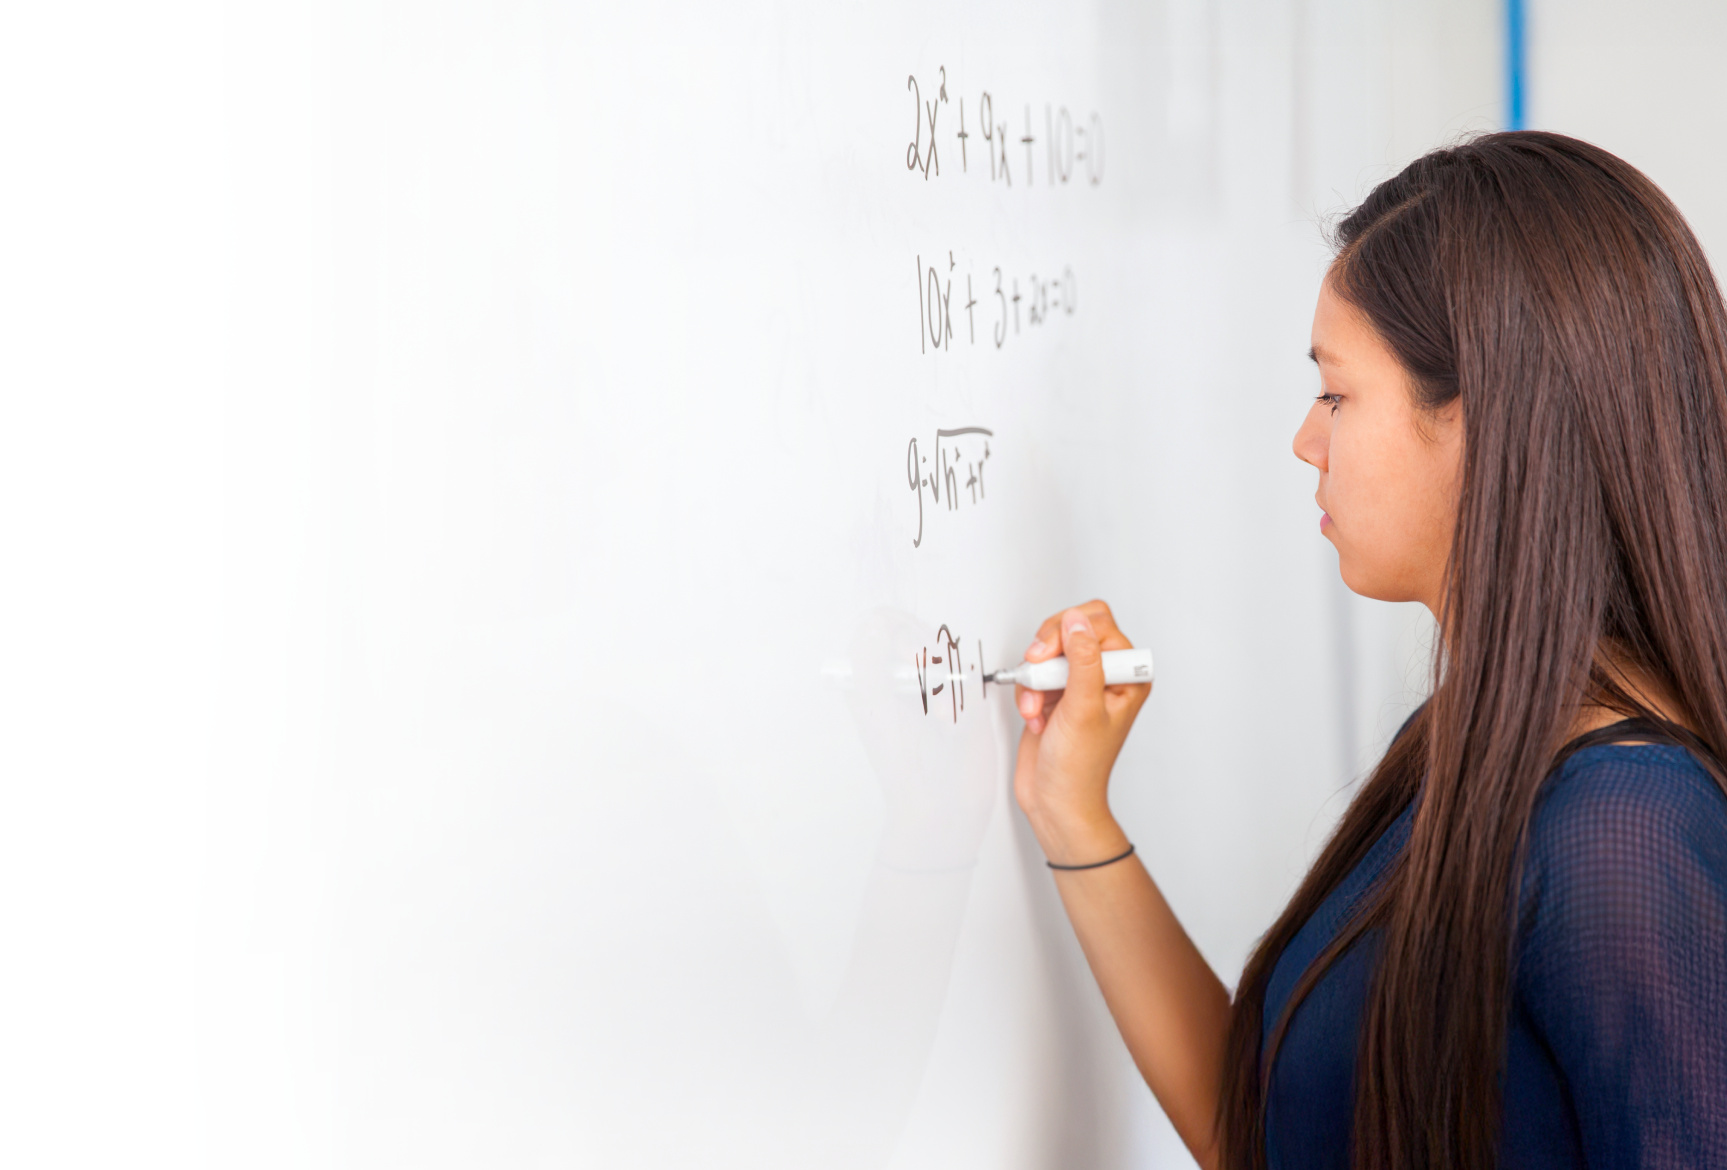 2x² + 9x + 10 = 0
10x² + 3 + 2x = 0
g = √h² + r²
v = π ·